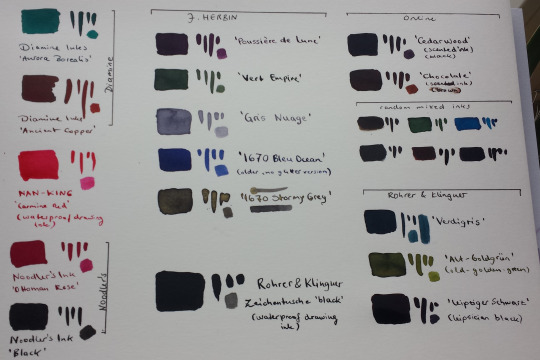 Diamine Inks
'Aurora Borealis'
Diamine Inks
'Ancient Copper'
Diamine
NAN-KING
'Carmine Red'
(waterproof drawing
ink)
Noodler's Ink
'Ottoman Rose'
Noodler's Ink
'Black'
Noodler's
J. HERBIN
'Poussière de Lune'
'Vert Empire'
'Gris Nuage'
'1670 Bleu Ocean'
(older, no glitter version)
'1670 Stormy Grey'
Rohrer & Klingner
Zeichentusche 'black'
(waterproof drawing
ink)
Online
'Cedarwood'
(scented ink)
(black)
'Chocolate'
(scented ink)
(brown)
random mixed inks
Rohrer & Klingner
'Verdigris'
'Alt-Goldgrün'
(old-golden-green)
'Leipziger Schwarz'
(leipsician black)